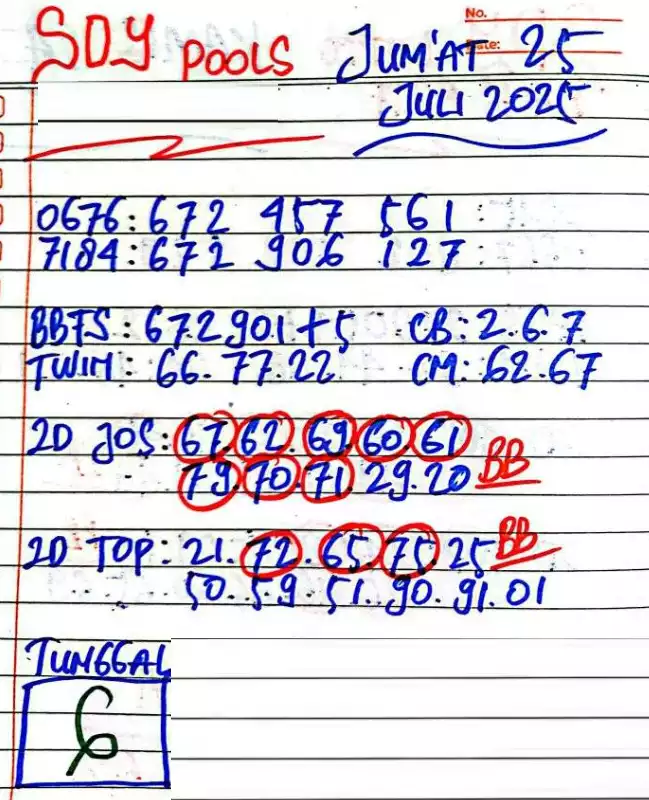 No.
Date:
SDY POOLS JUM'AT 25
JULI 2025
0676: 672 457 561
7184: 672 906 127
BBFS: 672901+5 CB: 2.6.7
TWIN: 66.77.22 CM: 62.67
2D JOS: 67 62. 69 60 61
79.70.71 29.20 BB
2D TOP: 21.72.65.75.25 BB
50.59.51.90.91.01
TUNGGAL
6